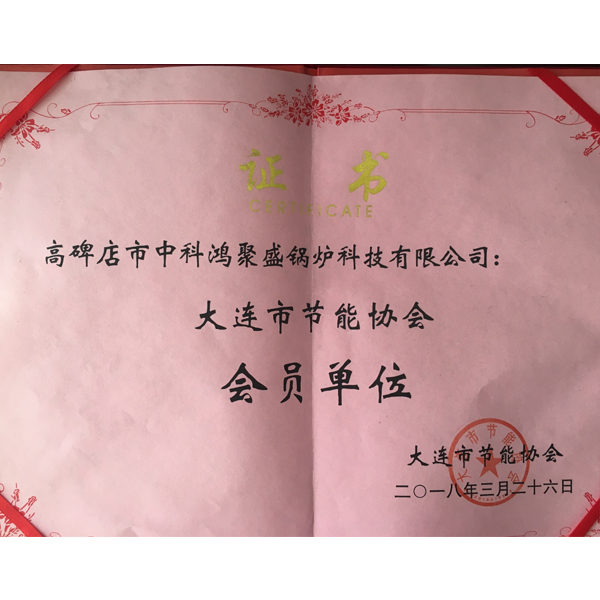 证 书
CERTIFICATE
高碑店市中科鸿聚盛锅炉科技有限公司：
大连市节能协会
会员单位
大连市节能协会
二〇一八年三月二十六日
大连市节能协会